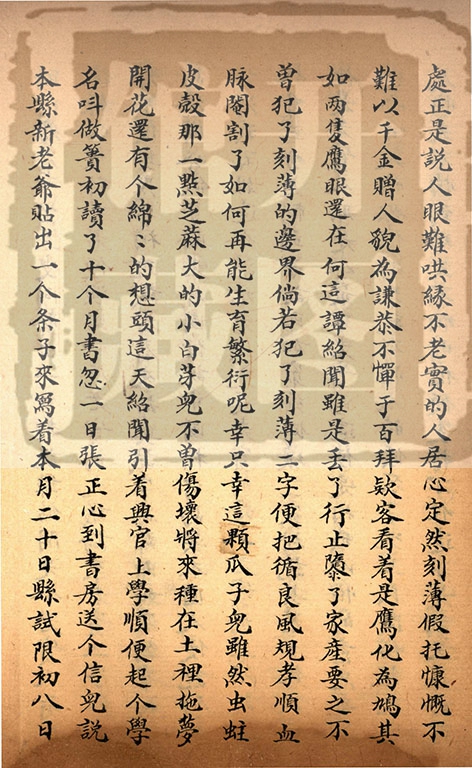 處正是説人眼難哄緣不老實的人居心定然刻薄假托慷慨不
難以千金贈人貌為謙恭不憚于百拜欵客看着是鷹化為鳩其
如两隻鷹眼還在何這譚紹聞雖是丢了行止隳了家産要之不
曾犯了刻薄的邊界倘若犯了刻薄二字便把循良風規孝順血
脉閹割了如何再能生育繁衍呢幸只幸這顆瓜子兒雖然虫蛀
皮殼那一㸃芝蔴大的小白芽兒不曾傷壞將來種在土裡拖夢
開花還有个綿〻的想頭這天紹聞引着興官上學順便起个學
名呌做簣初讀了十个月書忽一日張正心到書房送个信兒説
本縣新老爺貼出一个条子來寫着本月二十日縣試限初八日